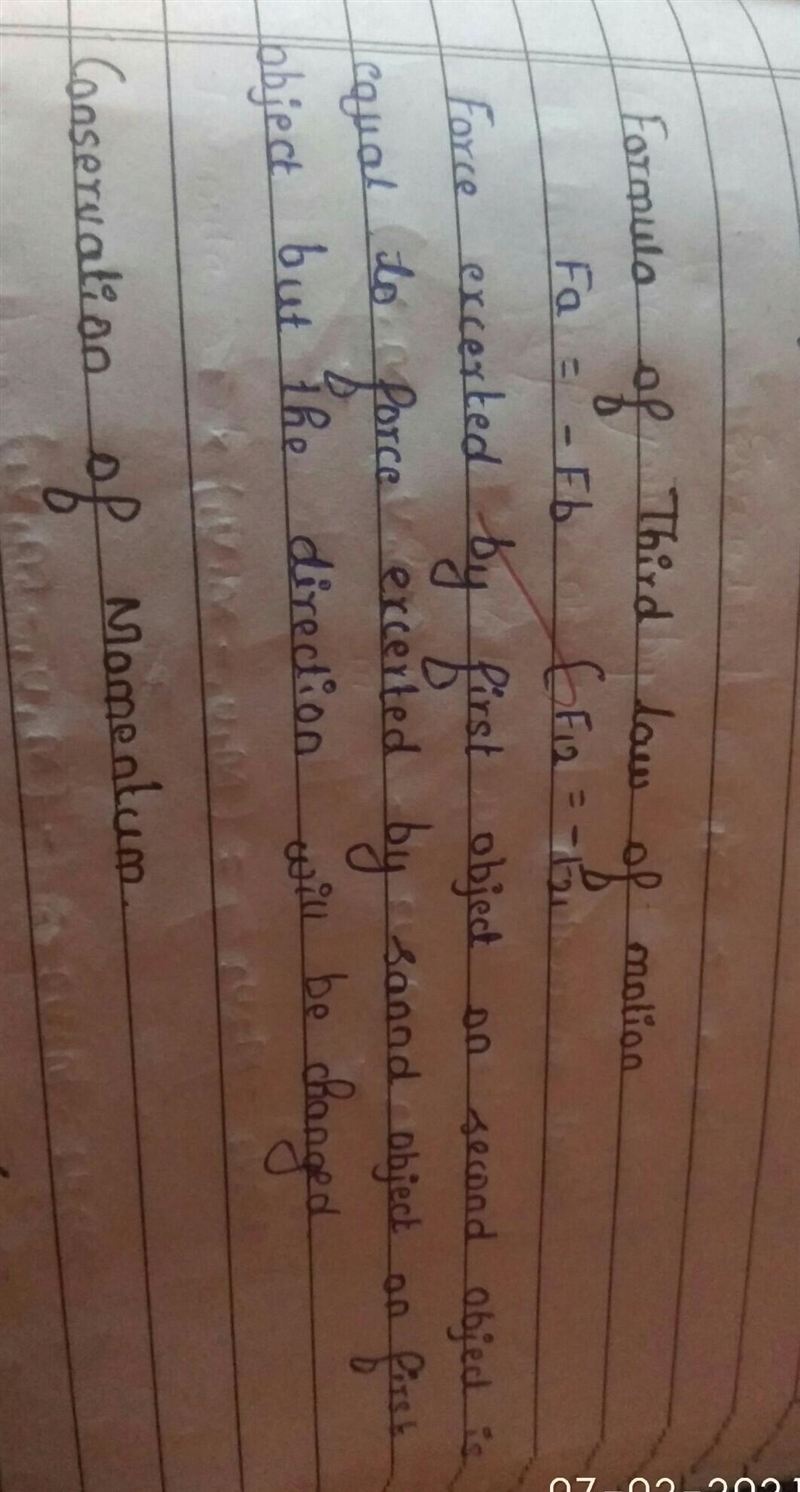 Formula of Third law of motion
Fa = -Fb (F12 = -F21
Force excerted by first object on second object is
equal to force excerted by sannd object on first
object but the direction will be changed
Conservation of Momentum.